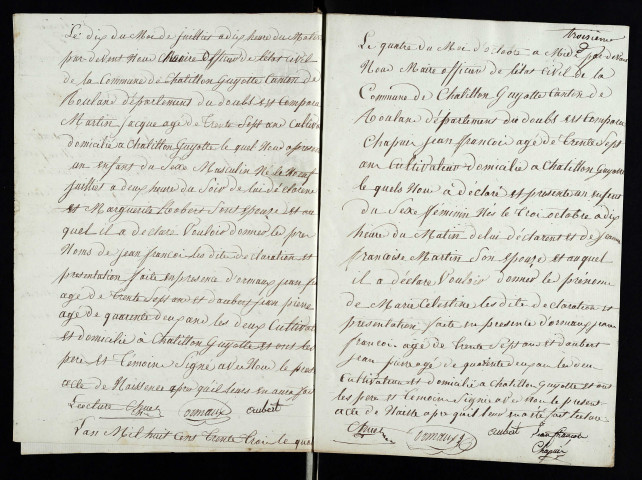 Le dix du Moi de juilliet a dix heure du Matin
par devent Nous Maire officier de letat civil
de la Commune de Chatillon Guyotte Canton de
Roulans département du doubs est comparu
Martin jacque age de trente Sept ans Cultiva
domicilie a Chatillon Guyotte le quel Nous a presente
un enfant du Sexe Masculin Né le Neuf
juilliet a deux heure du Soir de lui déclarent
et Marguerite Sont Epouse et au
quel il a declare Vouloir donner les pre
Noms de jean francois les dite declaration et
presentation faite en presence d'ormaux jean fr
age de trente Sept ans et daubert jean pierre
age de quarente deux ans les deux Cultivat
et domicilie à Chatillon Guyotte et ont les
pere et temoins Signe avec Nous le present
acte de Naissence apre quil leurs en a ete fait
Lecture ormaux aubert
Lan Mil huit Cent trente trois le quat
troisieme
Le quatre du Moi doctobre a Midi par devent
Nous Maire officier de letat Civil de la
Commune de Chatillon Guyotte Canton de
Roulans département du doubs est Comparu
Chapuis jean francois age de trente Sept
ans Cultivateur domicilie a Chatillon Guyotte
le quel Nous a declaré et presente un enfent
du Sexe féminin Née le troi octobre a dix
heure du Matin de lui déclarent et de jeanne
francoise Martin Son Epouze et auquel
il a déclare Vouloir donner le prénom
de Marie Celestine les dite declaration et
presentation faite en presence dormaux jean
francois age de trente Sept ans et daubert
jean pierre agé de quarente deux ans les deux
Cultivateur et domicilie a Chatillon Guyotte et ont
les pere et temoins Signe avec Nous le present
acte de Naiss apre quil leur en a ete fait lecture
ormaux aubert jean francois
Chapuis